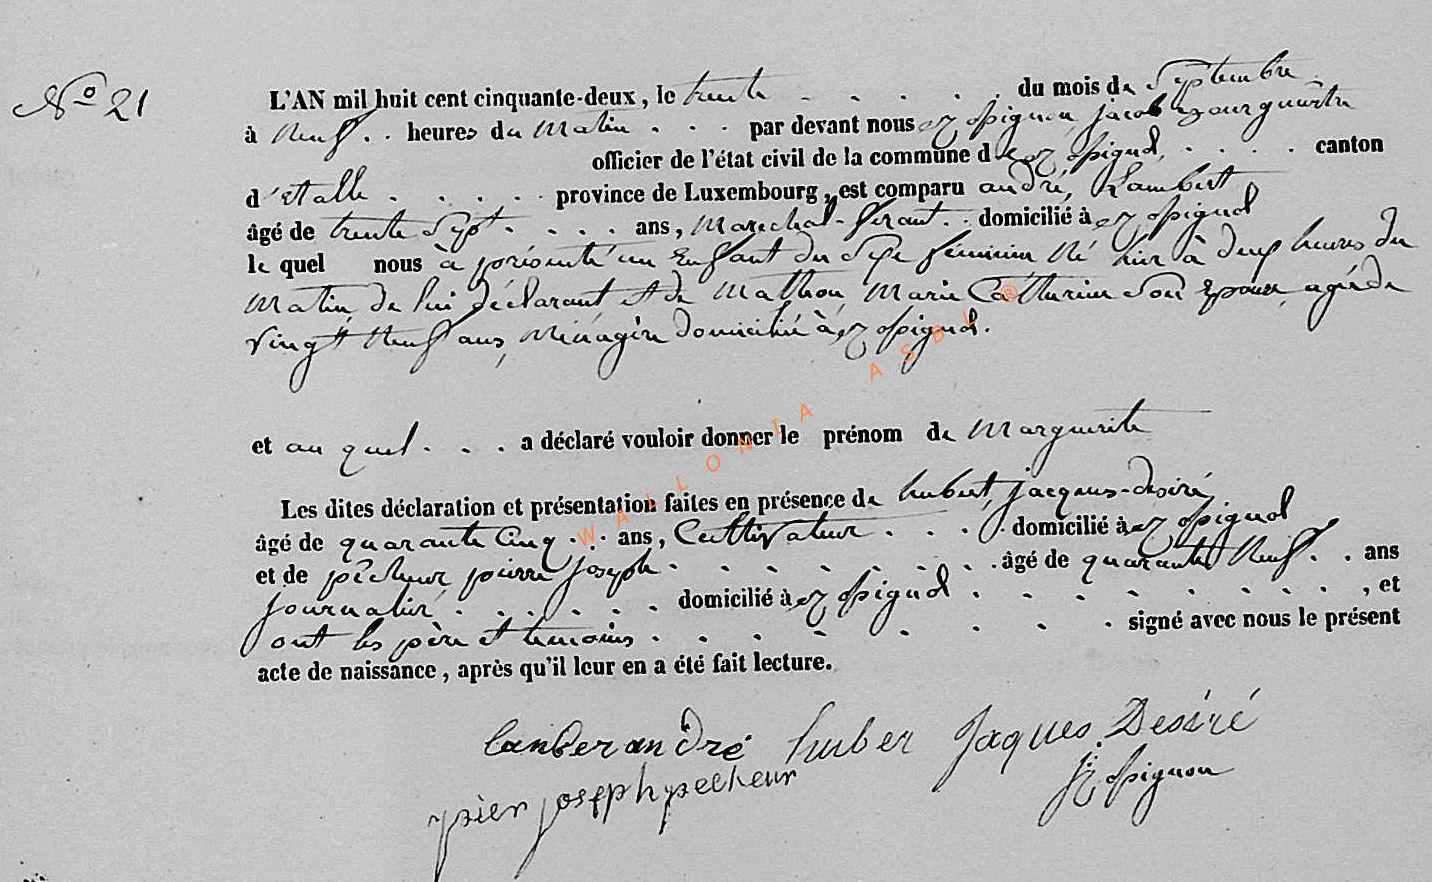 No 21
L'AN mil huit cent cinquante-deux, le trente . . . . . du mois de Septembre
à neuf . . heures du matin . . . par devant nous jacob bourguemetre
officier de l'état civil de la commune d . . . . canton
d'Etalle . . . . . province de Luxembourg, est comparu andré, Lambert
âgé de trente Sept . . . . ans, marechal-ferant . . domicilié à
le quel nous à présenté un Enfant du Sexe féminin Né hier à deux heures du
matin, de lui déclarant et de Mathon, Marie Catherine Son Epouse, agée de
vingt Neuf ans, ménagère domicilié à
et au quel . . . a déclaré vouloir donner le prénom de Marguerite
Les dites déclaration et présentation faites en présence de hubert, jacques-desiré,
âgé de quarante Cinq . . . ans, Cultivateur . . . . domicilié à
et de pêcheur pierre joseph . . . . . . . . âgé de quarante Neuf . . ans
journalier . . . . . . domicilié à . . . . . . . . , et
ont les père et temoins . . . . . . . . signé avec nous le présent
acte de naissance, après qu'il leur en a été fait lecture.
lanber andré huber Jaques Desiré
pier joseph pecheur
WALLONIA ASBL ®